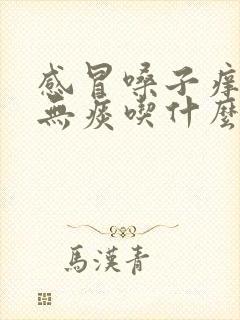 感冒嗓子痒
無痰喫什麼
馬漢青